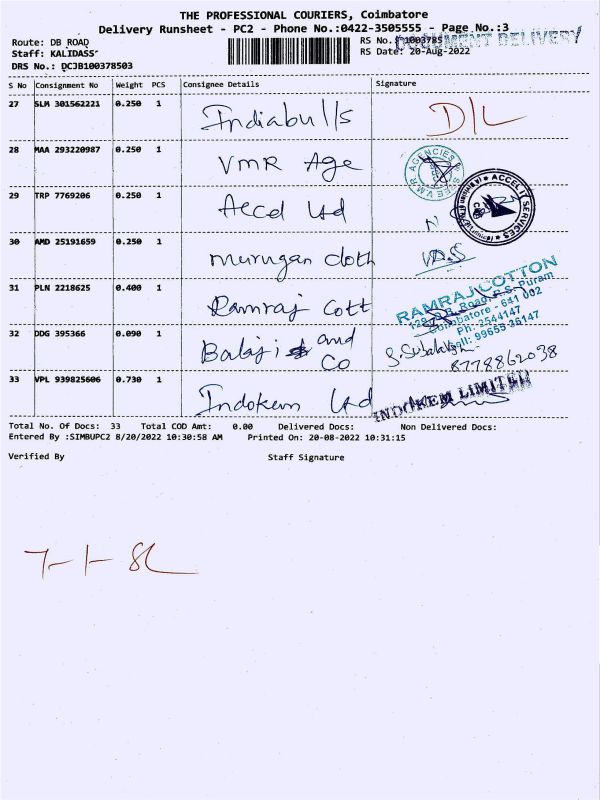 THE PROFESSIONAL COURIERS, Coimbatore
Delivery Runsheet - PC2 - Phone No.:0422-3505555 - Page No.:3
Route: DB ROAD
RS No.: 1003785
DOCUMENT DELIVERY
Staff: KALIDASS
RS Date: 20-Aug-2022
DRS No.: DCJB100378503
S No Consignment No Weight PCS Consignee Details Signature
27 SLM 301562221 0.250 1 Indiabulls D/L
28 MAA 293220987 0.250 1 VMR Age
V.M.R. AGENCIES
29 TRP 7769206 0.250 1 Accd Ltd
ACCEL IT SERVICES
30 AMD 25191659 0.250 1 murugan cloth
31 PLN 2218625 0.400 1 Ramraj Cott
RAMRAJ COTTON
Road, R.S. Puram
Coimbatore - 641 002
Ph: 2544147
Cell: 99655 36147
32 DDG 395366 0.090 1 Balaji and
Co
8778862038
33 VPL 939825606 0.730 1 Indokem Ltd
INDOKEM LIMITED
Total No. Of Docs: 33 Total COD Amt: 0.00 Delivered Docs: Non Delivered Docs:
Entered By :SIMBUPC2 8/20/2022 10:30:58 AM Printed On: 20-08-2022 10:31:15
Verified By Staff Signature